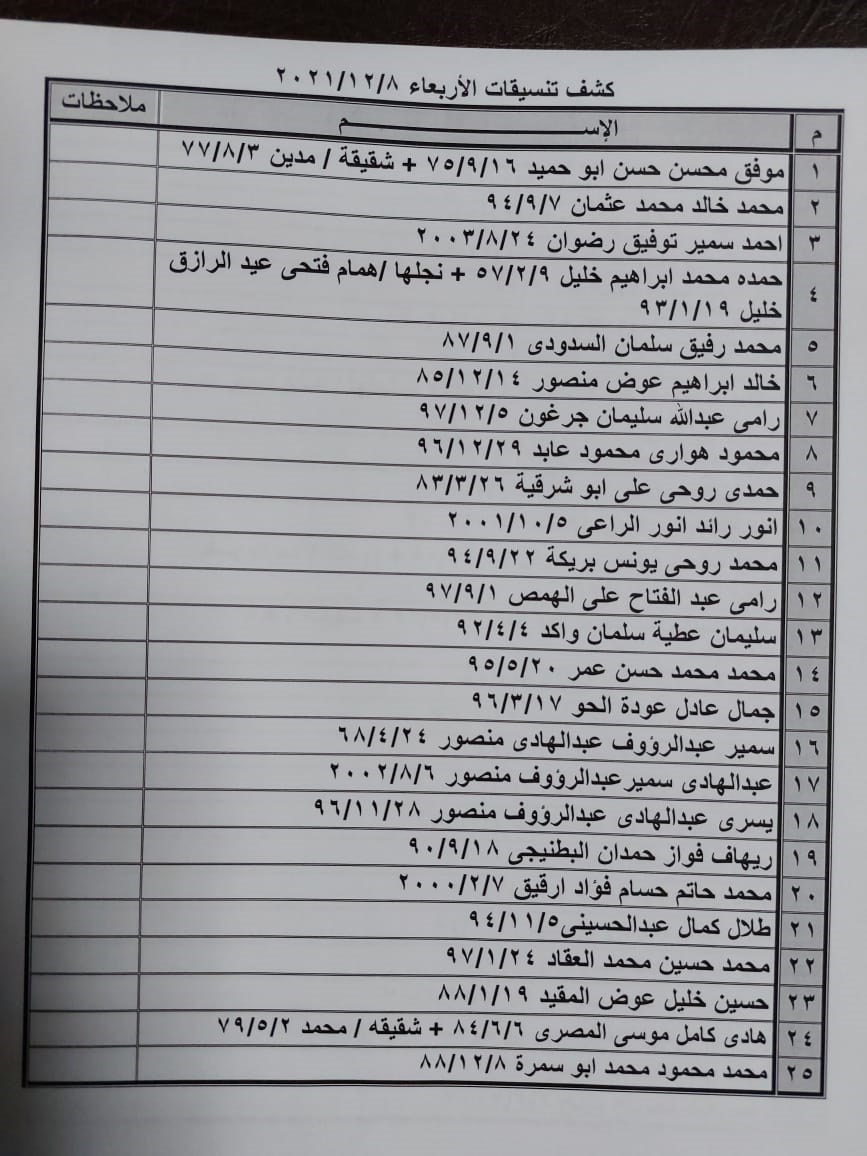 كشف تنسيقات الأربعاء ٢٠٢١/١٢/٨
م الإســـــــــــم ملاحظات
١ موفق محسن حسن ابو حميد ٧٥/٩/١٦ + شقيقة / مدين ٧٧/٨/٣
٢ محمد خالد محمد عثمان ٩٤/٩/٧
٣ احمد سمير توفيق رضوان ٢٠٠٣/٨/٢٤
٤ حمده محمد ابراهيم خليل ٥٧/٢/٩ + نجلها /همام فتحى عبد الرازق
خليل ٩٣/١/١٩
٥ محمد رفيق سلمان السدودى ٨٧/٩/١
٦ خالد ابراهيم عوض منصور ٨٥/١٢/١٤
٧ رامى عبدالله سليمان جرغون ٩٧/١٢/٥
٨ محمود هوارى محمود عابد ٩٦/١٢/٢٩
٩ حمدى روحى على ابو شرقية ٨٣/٣/٢٦
١٠ انور رائد انور الراعى ٢٠٠١/١٠/٥
١١ محمد روحى يونس بريكة ٩٤/٩/٢٢
١٢ رامى عبد الفتاح على الهمص ٩٧/٩/١
١٣ سليمان عطية سلمان واكد ٩٢/٤/٤
١٤ محمد محمد حسن عمر ٩٥/٥/٢٠
١٥ جمال عادل عودة الحو ٩٦/٣/١٧
١٦ سمير عبدالرؤوف عبدالهادى منصور ٦٨/٤/٢٤
١٧ عبدالهادى سميرعبدالرؤوف منصور ٢٠٠٢/٨/٦
١٨ يسرى عبدالهادى عبدالرؤوف منصور ٩٦/١١/٢٨
١٩ ريهاف فواز حمدان البطنيجى ٩٠/٩/١٨
٢٠ محمد حاتم حسام فؤاد ارقيق ٢٠٠٠/٢/٧
٢١ طلال كمال عبدالحسينى٩٤/١١/٥
٢٢ محمد حسين محمد العقاد ٩٧/١/٢٤
٢٣ حسين خليل عوض المقيد ٨٨/١/١٩
٢٤ هادى كامل موسى المصرى ٨٤/٦/٦ + شقيقه / محمد ٧٩/٥/٢
٢٥ محمد محمود محمد ابو سمرة ٨٨/١٢/٨